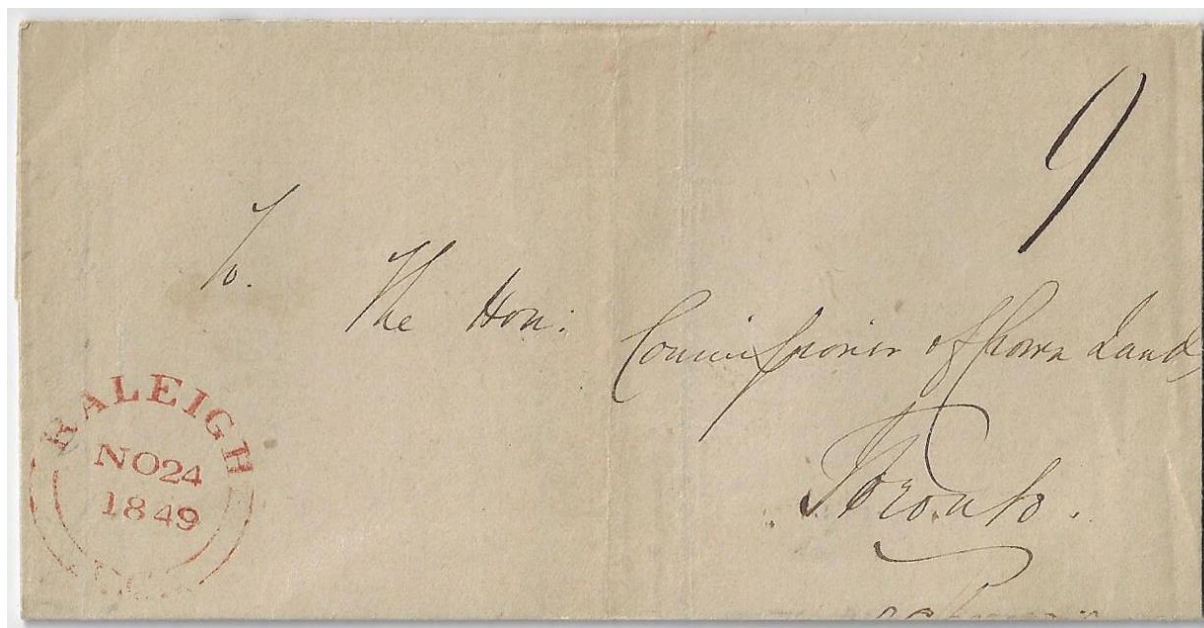 9
To.
The Hon: Commissioner of Crown Lands
Toronto.
RALEIGH
NO 24
1849
U.C.